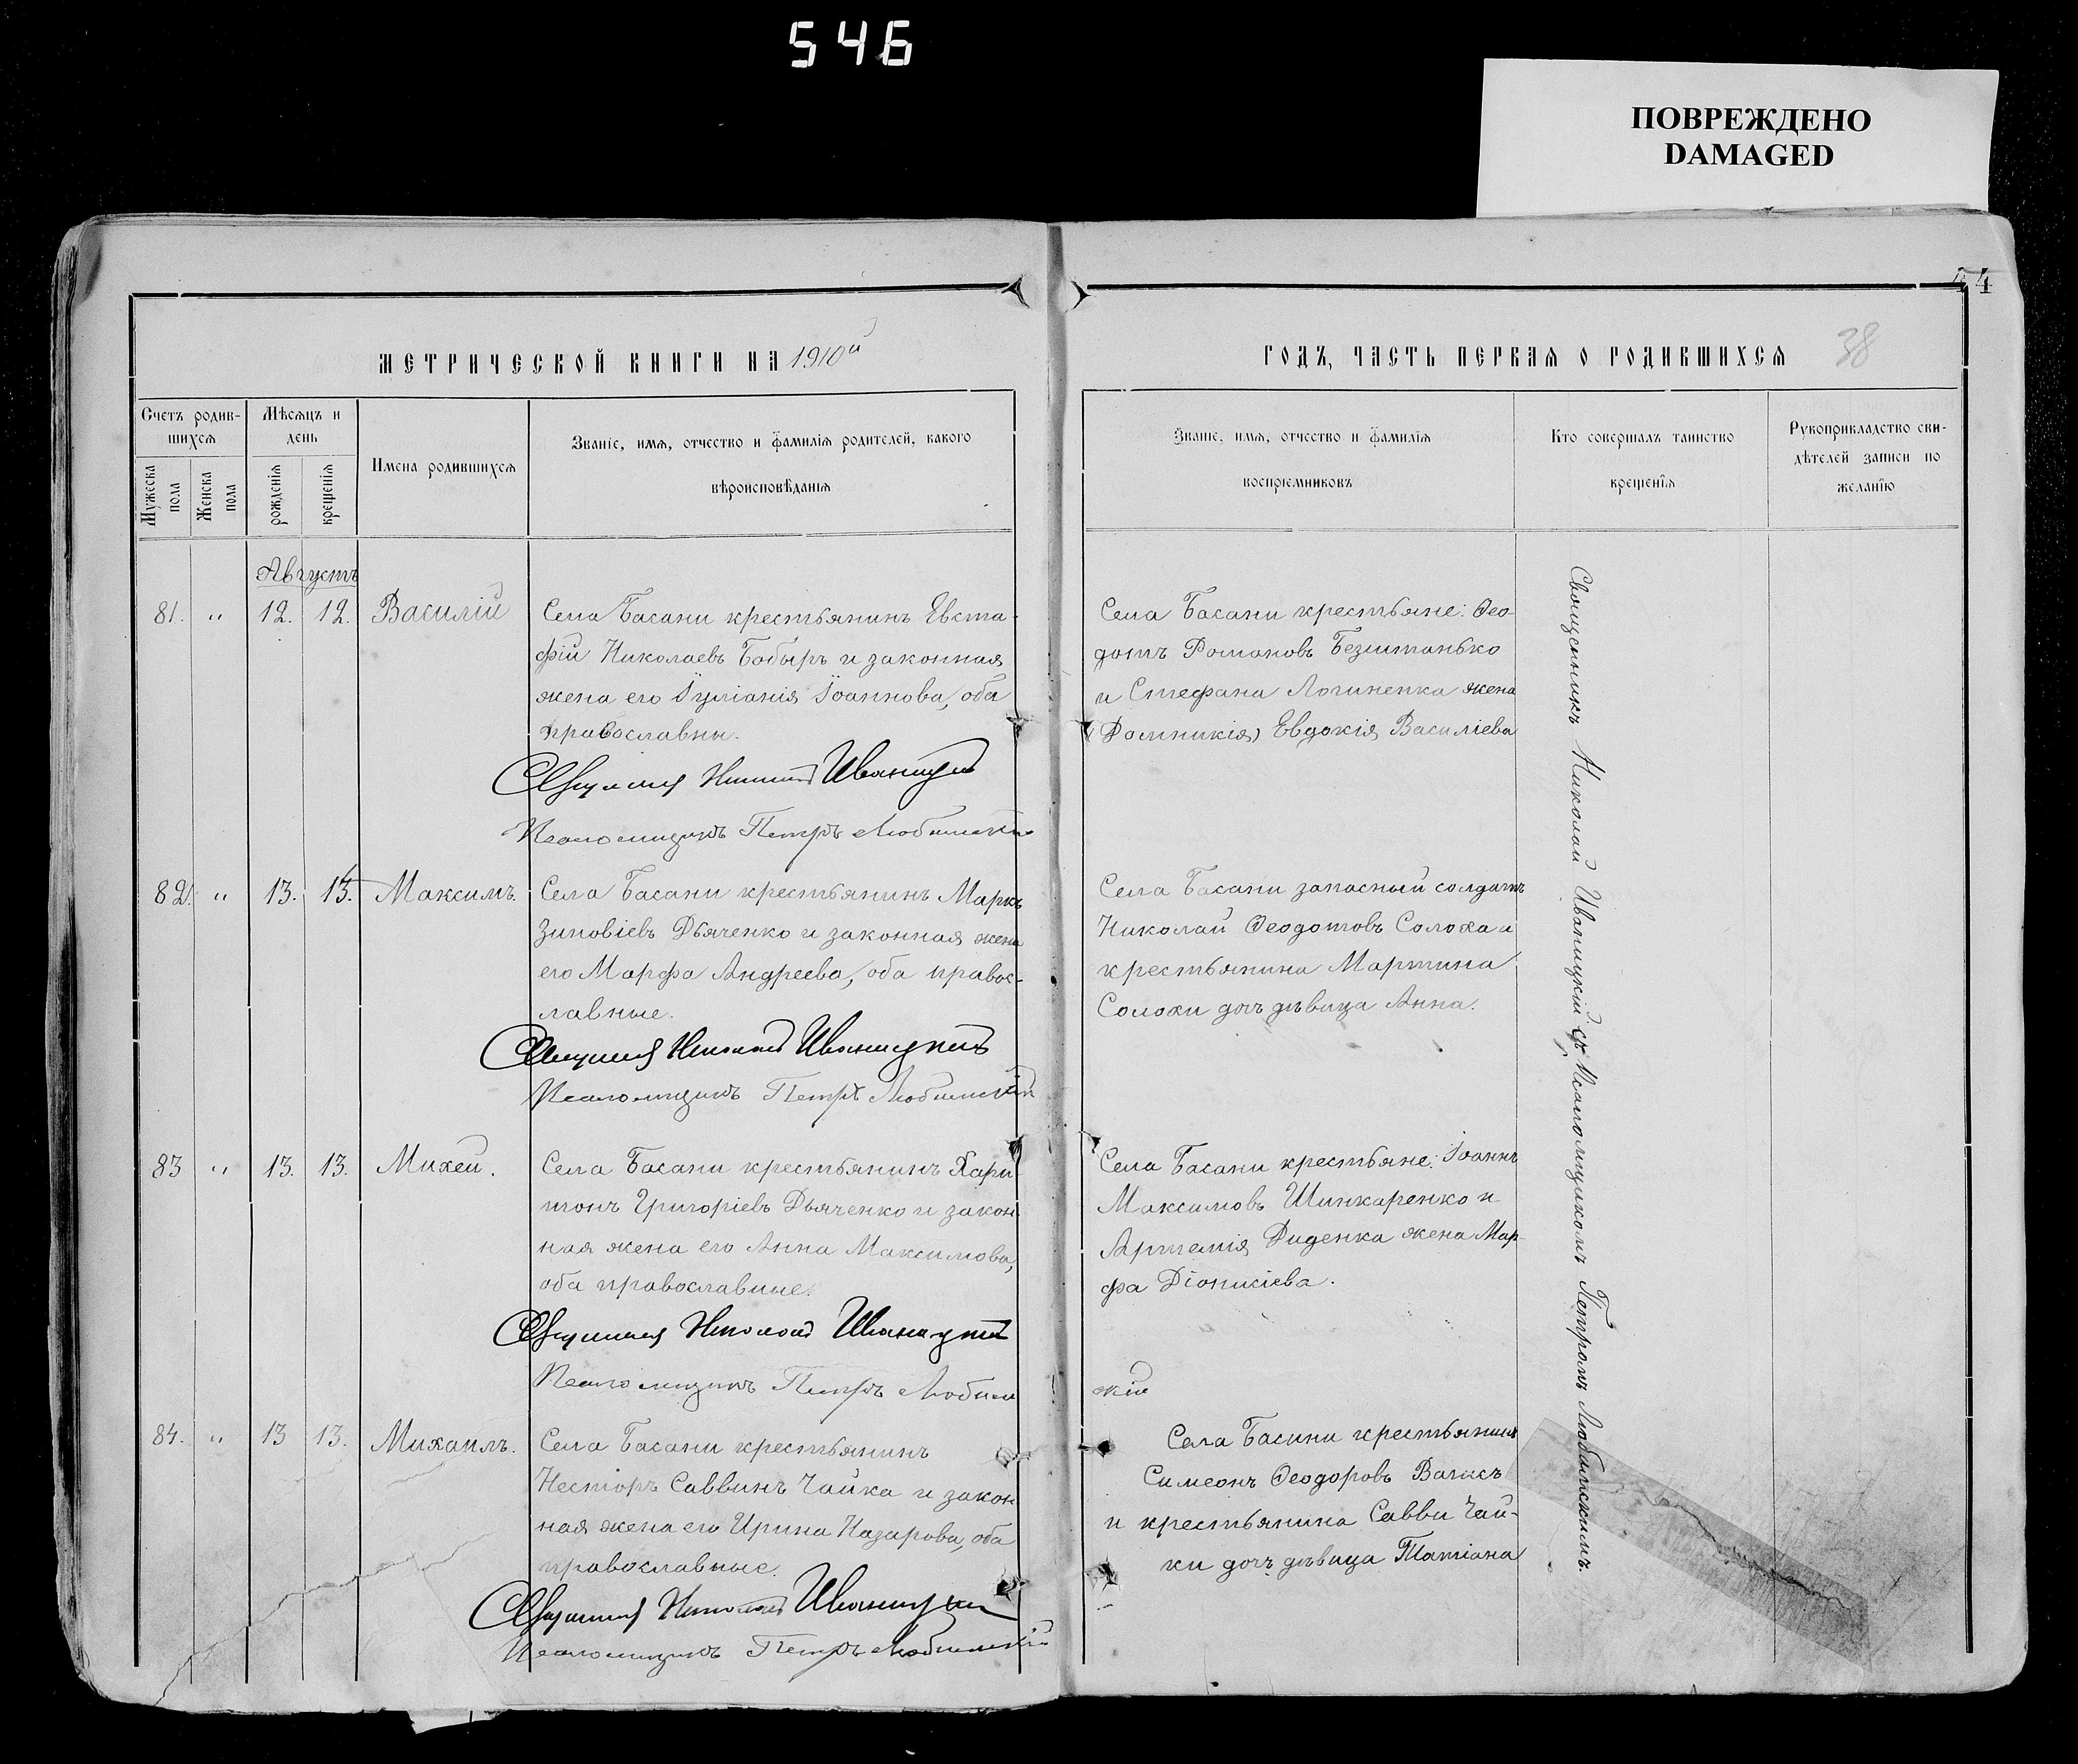 546
ПОВРЕЖДЕНО
DAMAGED
44
МЕТРИЧЕСКОЙ КНИГИ НА 1910й
Счетъ родив-
шихся
Мѣсяцъ и
день
Мужеска
пола
Женска
пола
рожденія
крещенія
Имена родившихся
Званіе, имя, отчество и фамилія родителей, какого
вѣроисповѣданія
Августъ
81. " 12. 12. Василій
Села Басани крестьянинъ Евста-
фій Николаевъ Бобырь и законная
жена его Іуліанія Іоаннова, оба
православны.
Священникъ Николай Иваницкій
Псаломщикъ Петръ Любимскій
82. " 13. 13. Максимъ.
Села Басани крестьянинъ Маркъ
Зиновіевъ Дьяченко и законная жена
его Марфа Андреева, оба правос-
лавные.
Священникъ Николай Иваницкій
Псаломщикъ Петръ Любимскій
83 " 13. 13. Михей.
Села Басани крестьянинъ Хари-
тонъ Григоріевъ Дьяченко и закон-
ная жена его Анна Максимова,
оба православные.
Священникъ Николай Иваницкій
Псаломщикъ Петръ Любим
84. " 13 13. Михаилъ.
Села Басани крестьянинъ
Несторъ Саввинъ Чайка и закон
ная жена его Ирина Назарова, оба
православные.
Священникъ Николай Иваницкій
Псаломщикъ Петръ Любимскій
ГОДЪ, ЧАСТЬ ПЕРВАЯ О РОДИВШИХСЯ
38
Званіе, имя, отчество и фамилія
воспріемниковъ
Кто совершалъ таинство
крещенія
Рукоприкладство сви-
дѣтелей записи по
желанію
Села Басани крестьяне: Ѳео-
дотъ Романовъ Безштанько
и Стефана Логиненка жена
(Домникія) Евдокія Василіева
Села Басани запасный солдатъ
Николай Ѳеодотовъ Солоха и
крестьянина Мартина
Солохи дочь дѣвица Анна.
Села Басани крестьяне: Іоаннъ
Максимовъ Шинкаренко и
Артемія Диденка жена Мар-
фа Діонисіева.
скій
Села Басани крестьянинъ
Симеонъ Ѳеодоровъ
и крестьянина Саввы Чай-
ки дочь дѣвица Татіана
Священникъ Николай Иваницкій съ Псаломщикомъ Петромъ Любимскимъ.